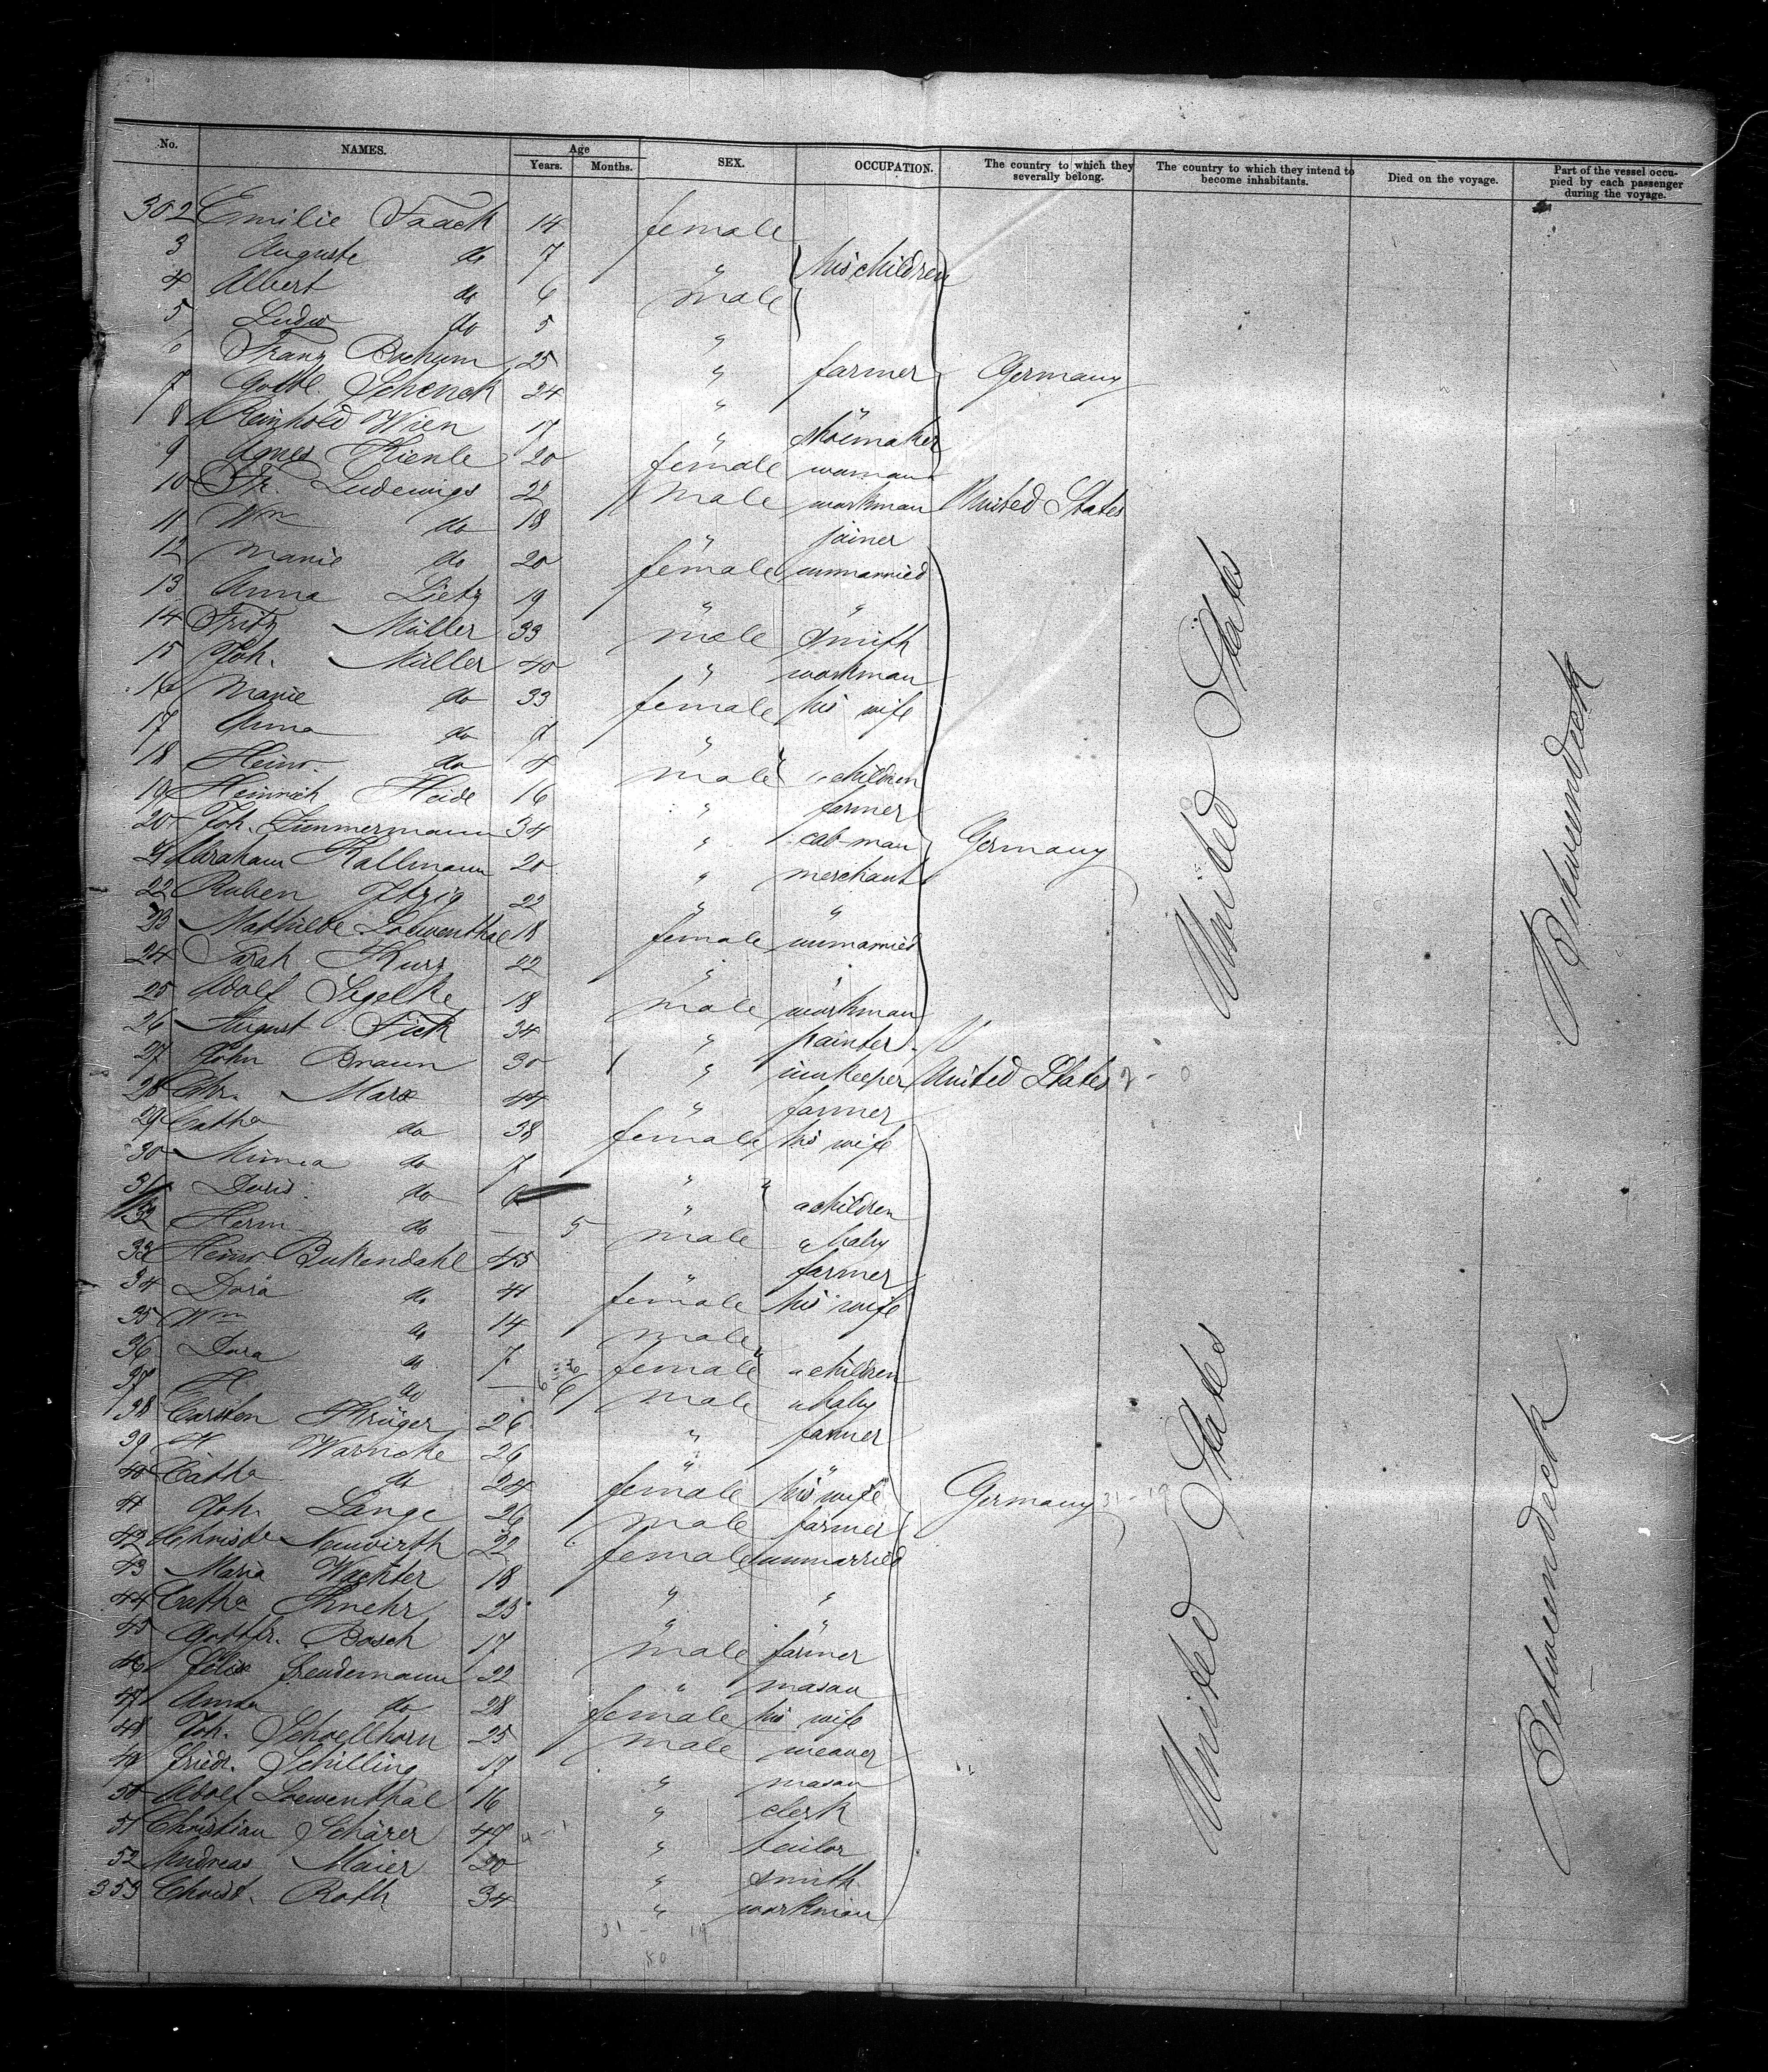 No. NAMES. Age Years. Months. SEX. OCCUPATION. The country to which they severally belong. The country to which they intend to become inhabitants. Died on the voyage. Part of the vessel occupied by each passenger during the voyage.
302 Emilie Taack 14 female
3 Auguste do 7 " his children
4 Albert do 6 male
5 Ludw do 5 "
6 Franz Bochum 25 " farmer Germany
7 Gottl. Schenck 24 " "
8 Reinhold Wien 17 " shoemaker
9 Agnes Kienle 20 female woman
10 Fr. Ludewigs 22 male workman United States
11 Wm do 18 " joiner
12 Marie do 20 female unmarried
13 Anna Lietz 19 " "
14 Fritz Müller 33 male smith
15 Joh. Müller 40 " workman
16 Marie do 33 female his wife
17 Anna do 7 "
18 Heinr. do 4 male " children
19 Heinrich Heide 16 " farmer
20 Joh. Zimmermann 34 " cab-man Germany
21 Abraham Kallmann 20 " merchant
22 Ruben Itzig 22 " "
23 Mathilde Loewenthal 18 female unmarried
24 Sarah Kurz 22 " "
25 Adolf Segelke 18 male workman
26 August Fick 34 " painter
27 John Braun 30 " innkeeper United States
28 Chr. Marx 44 " farmer
29 Catha do 38 female his wife
30 Minna do 7 "
31 Doris do 6 " " children
32 Herm do — 5 male " baby
33 Heinr. Bukendahl 45 " farmer
34 Dora do 41 female his wife
35 Wm do 14 male
36 Dora do 7 female " children
37 H do — 6 male " baby
38 Carsten Krüger 26 " farmer
39 H Warncke 26 " "
40 Catha do 24 female his wife
41 Joh. Lange 26 male farmer Germany
42 Neuwirth 22 female unmarried
43 Maria Wachter 18 " "
44 Catha Knehr 25 " "
45 Gottfr. Bosch 17 male farmer
46 Felix Freudemann 22 " mason
47 Anna do 28 female his wife
48 Joh. Schoellhorn 25 male weaver
49 Friedr. Schilling 17 " mason
50 Adolf Loewenthal 16 " clerk
51 Christian Schärer 47 " tailor
52 Andreas Maier 20 " smith
353 Christ. Roth 34 " workman
United States
United States
Betweendeck
Betweendeck